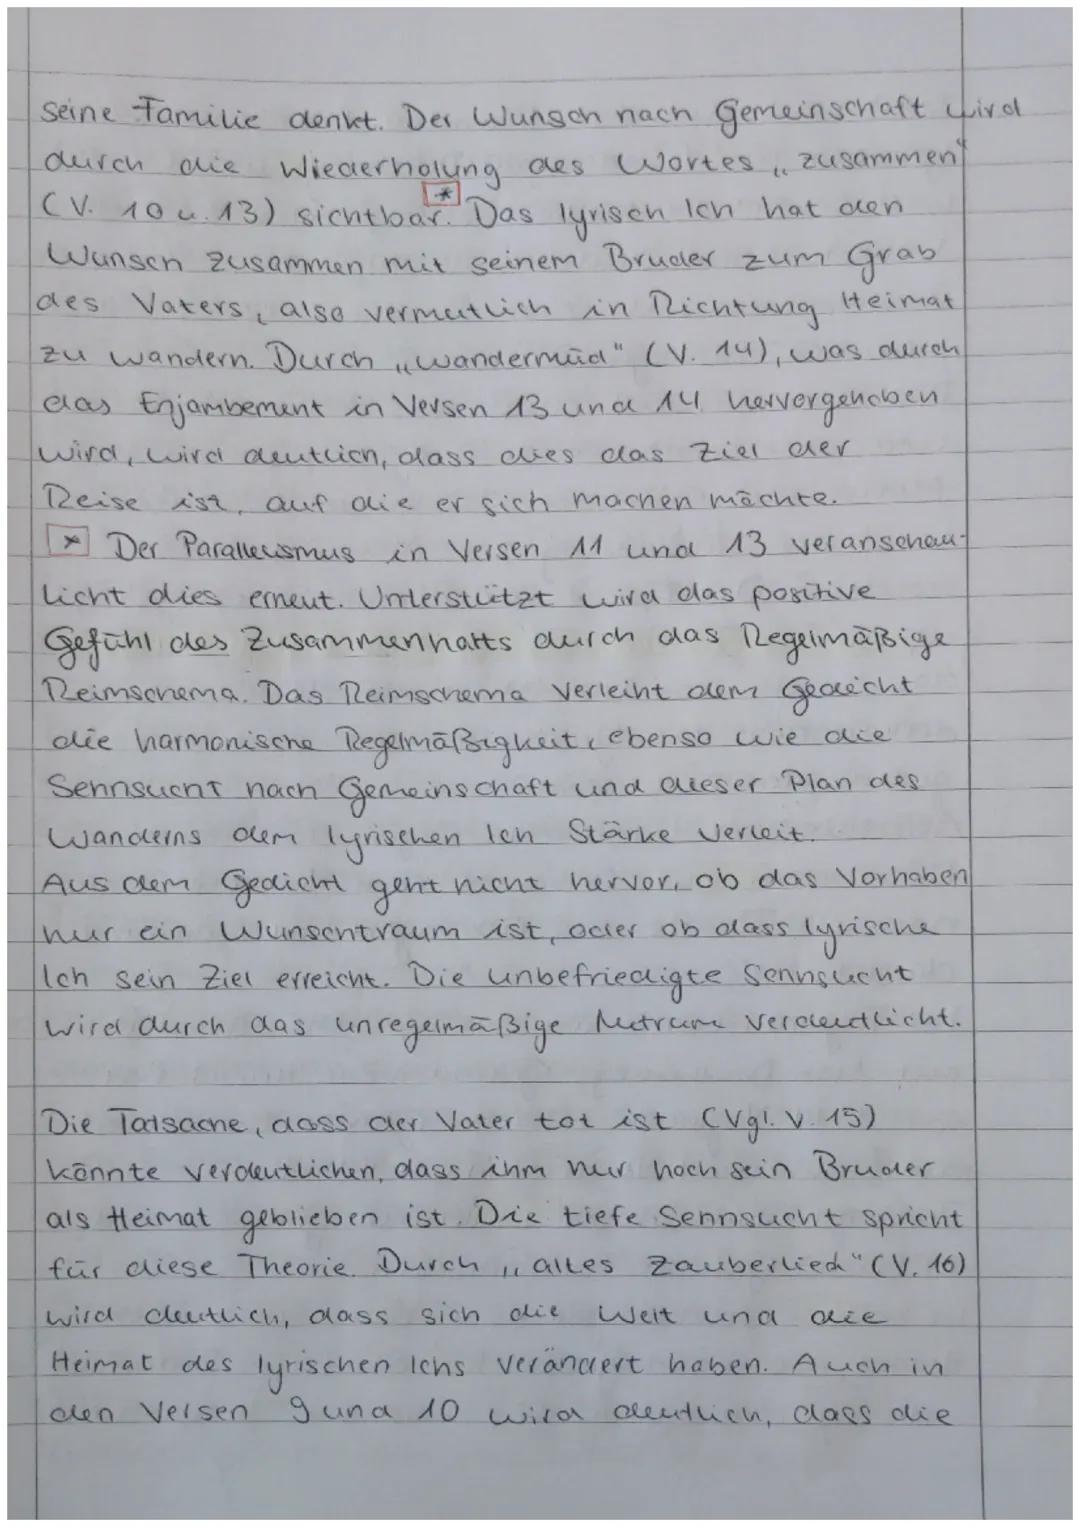 seine Familie denkt. Der Wunsch nach Gemeinschaft wird
durch die Wiederholung des Wortes „zusammen"
(V. 10 u. 13) sichtbar. * Das lyrisch Ich hat den
Wunsch zusammen mit seinem Bruder zum Grab
des Vaters, also vermutlich in Richtung Heimat
zu wandern. Durch „wandermüd" (V. 14), was durch
das Enjambement in Versen 13 und 14 hervorgehoben
wird, wird deutlich, dass dies das Ziel der
Reise ist, auf die er sich machen möchte.
* Der Parallelismus in Versen 11 und 13 veranschau-
licht dies erneut. Unterstützt wird das positive
Gefühl des Zusammenhalts durch das Regelmäßige
Reimschema. Das Reimschema verleiht dem Gedicht
die harmonische Regelmäßigkeit, ebenso wie die
Sehnsucht nach Gemeinschaft und dieser Plan des
Wanderns dem lyrischen Ich Stärke verleit.
Aus dem Gedicht geht nicht hervor, ob das Vorhaben
nur ein Wunschtraum ist, oder ob dass lyrische
Ich sein Ziel erreicht. Die unbefriedigte Sehnsucht
wird durch das unregelmäßige Metrum verdeutlicht.
Die Tatsache, dass der Vater tot ist (Vgl. V. 15)
könnte verdeutlichen, dass ihm nur noch sein Bruder
als Heimat geblieben ist. Die tiefe Sehnsucht spricht
für diese Theorie. Durch „altes Zauberlied" (V. 16)
wird deutlich, dass sich die Welt und die
Heimat des lyrischen Ichs verändert haben. Auch in
den Versen 9 und 10 wird deutlich, dass die